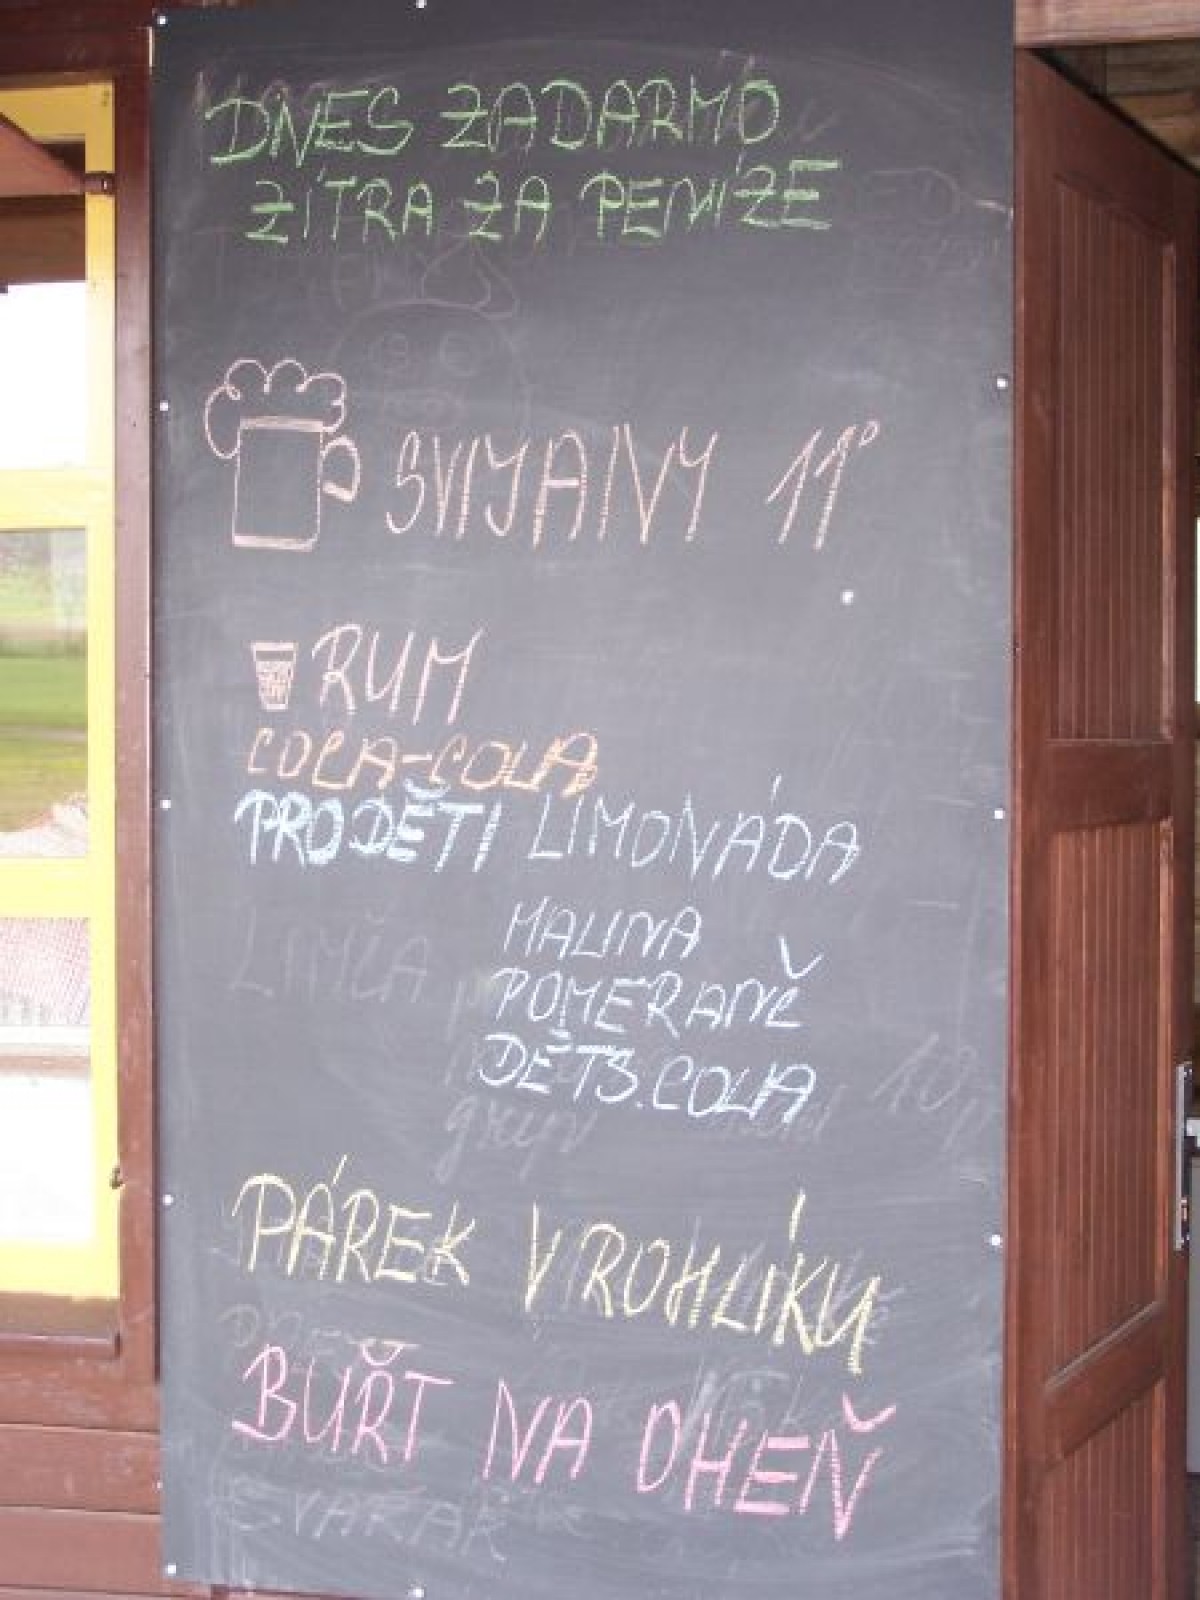 DNES ZADARMO
ZÍTRA ZA PENÍZE
SVIJANY 11°
RUM
COCA-COLA
PRO DĚTI LIMONÁDA
MALINA
POMERANČ
DĚTS. COLA
LIMČA
PÁREK V ROHLÍKU
BUŘT NA OHEŇ